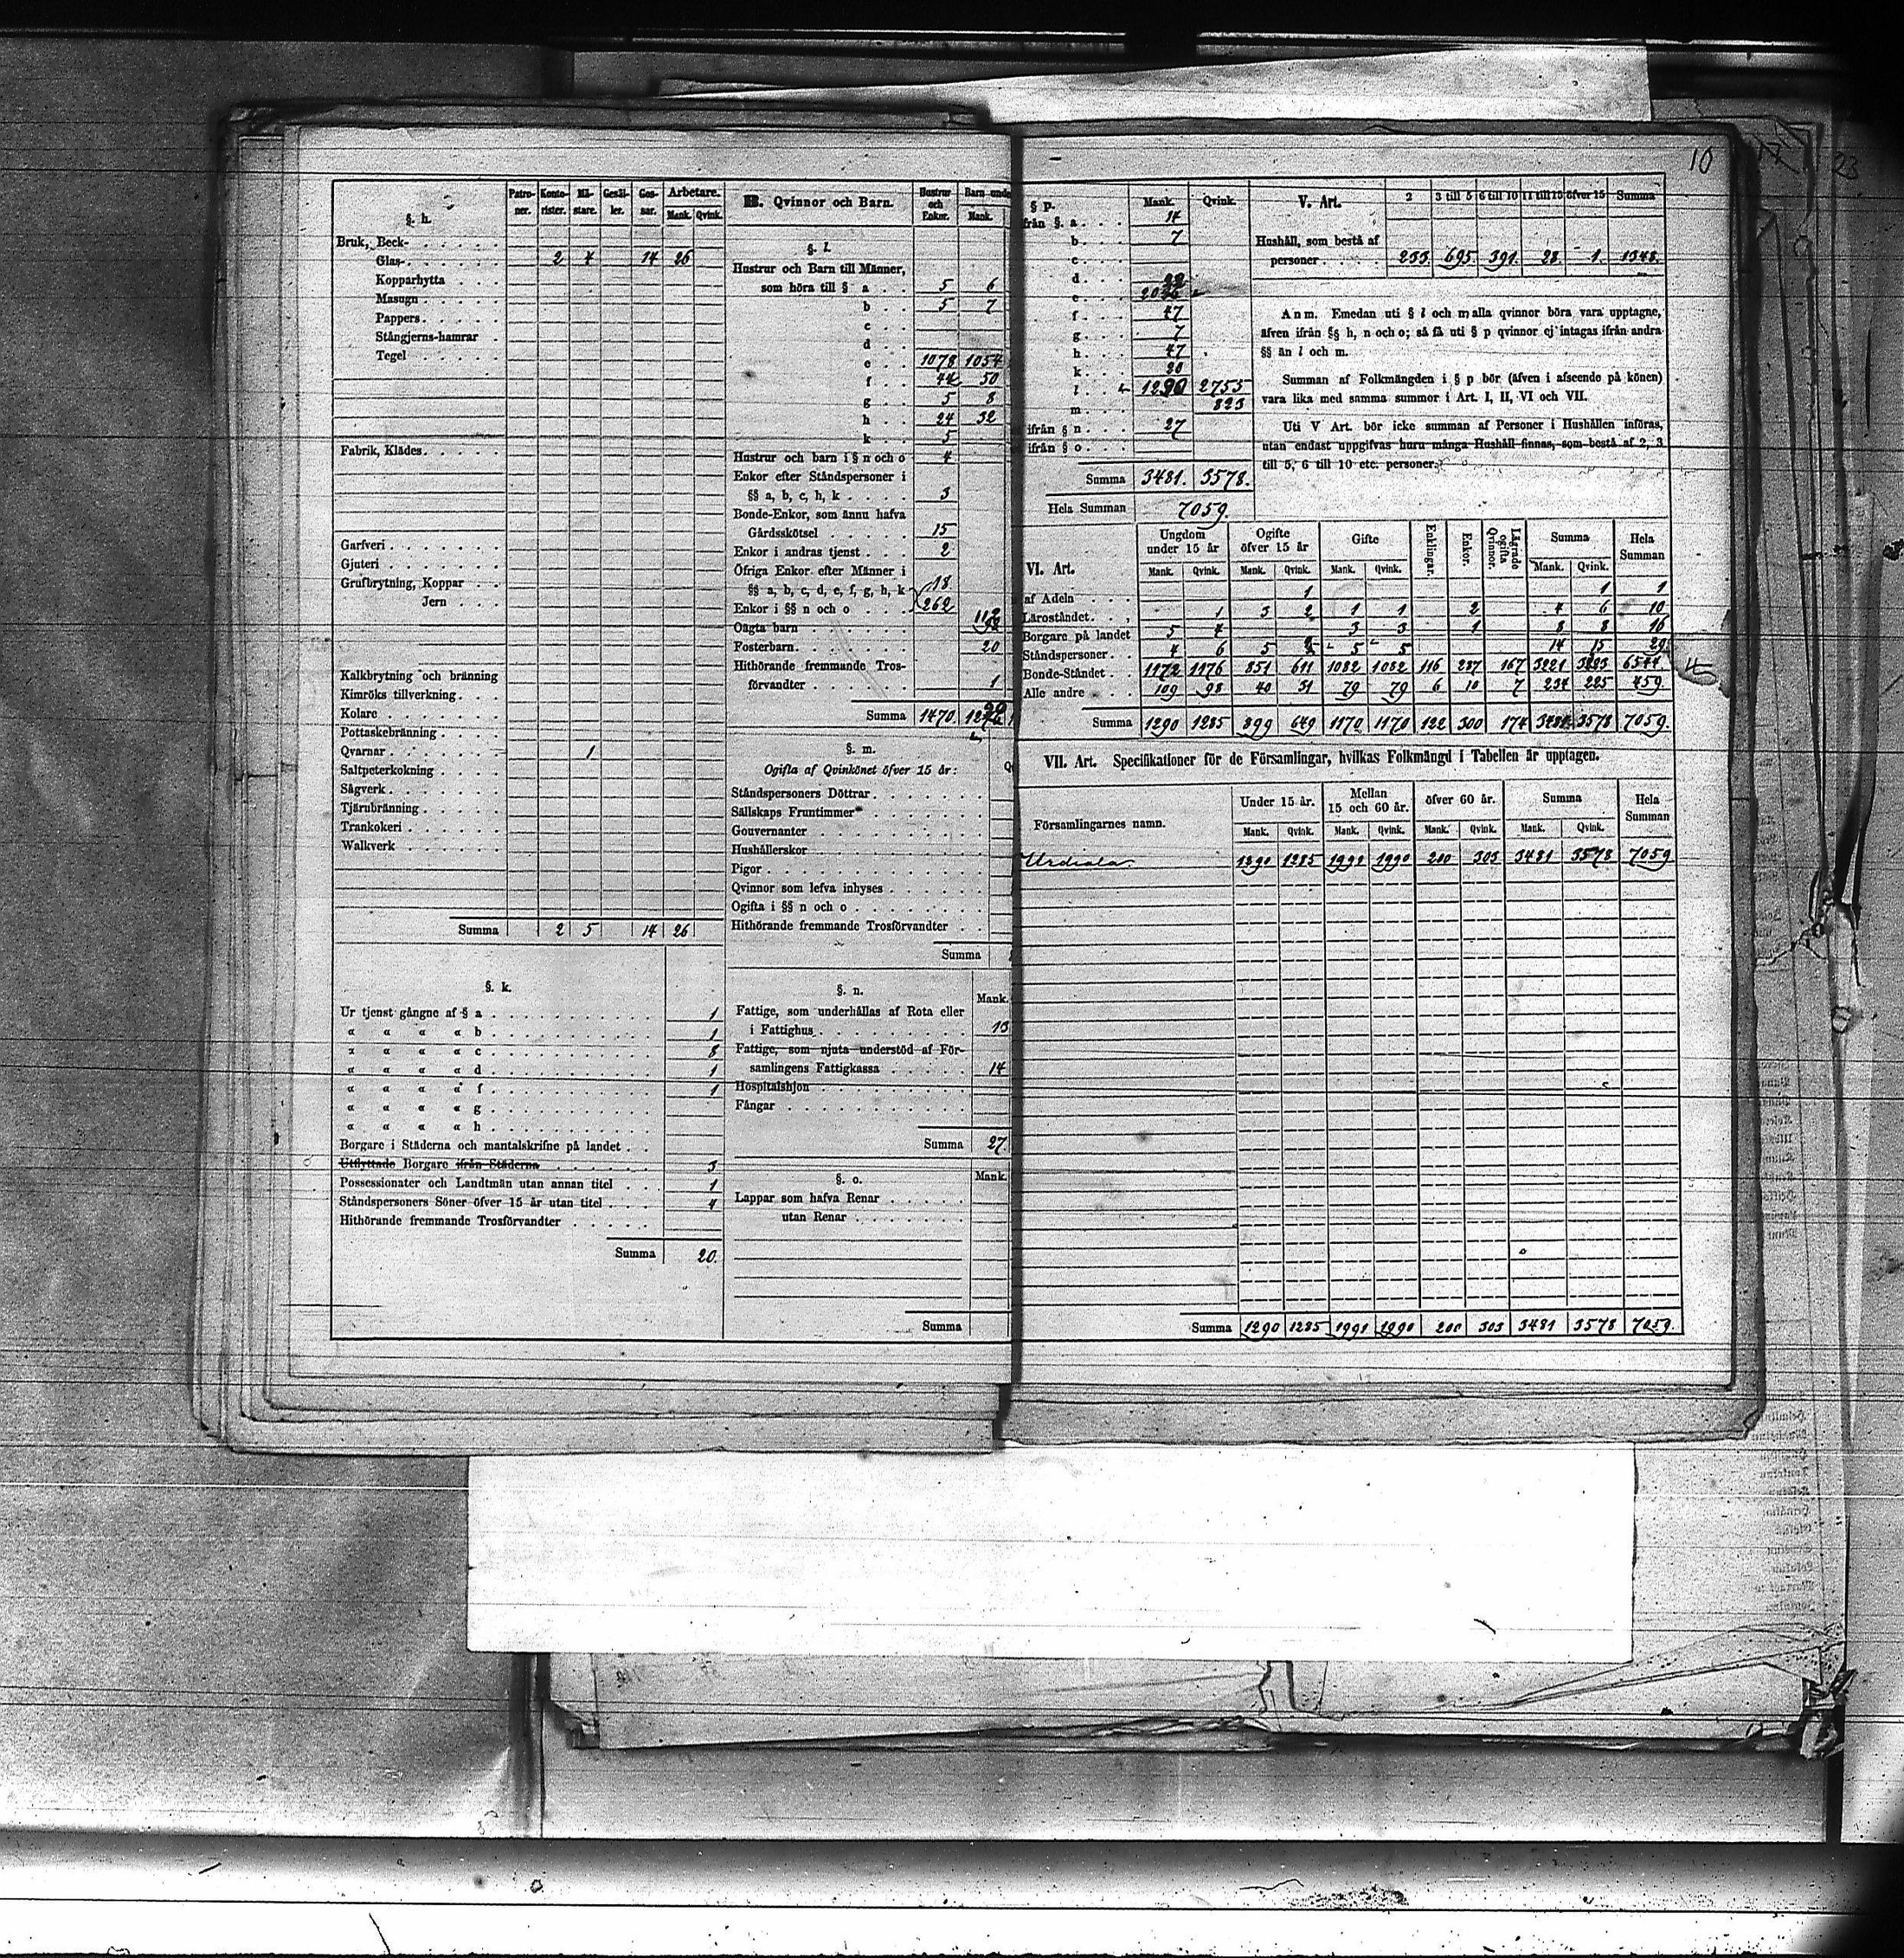 10
§. h.
Patro-ner. Konto-rister. Mä-stare. Gesäl-ler. Gos-sar. Arbetare. Mank. Qvink.
Bruk, Beck-
Glas- 2 4 14 26
Kopparhytta
Masugn
Pappers
Stångjerns-hamrar
Tegel
Fabrik, Klädes
Garfveri
Gjuteri
Grufbrytning, Koppar
Jern
Kalkbrytning och bränning
Kimröks tillverkning
Kolare
Pottaskebränning
Qvarnar 1
Saltpeterkokning
Sågverk
Tjärubränning
Trankokeri
Walkverk
Summa 2 5 14 26
§. k.
Ur tjenst gångne af § a 1
« « « « b 1
« « « « c 8
« « « « d 1
« « « « f 1
« « « « g
« « « « h
Borgare i Städerna och mantalskrifne på landet
Utflyttade Borgare ifrån Städerna 3
Possessionater och Landtmän utan annan titel 1
Ståndspersoners Söner öfver 15 år utan titel 4
Hithörande fremmande Trosförvandter
Summa 20.
B. Qvinnor och Barn. Hustrur och Enkor. Barn unde Mank.
§. l.
Hustrur och Barn till Männer,
som höra till § a 5 6
b 5 7
c
d
e 1078 1054
f 44 50
g 5 8
h 24 32
k 5
Hustrur och barn i § n och o 4
Enkor efter Ståndspersoner i
§§ a, b, c, h, k 3
Bonde-Enkor, som ännu hafva
Gårdsskötsel 15
Enkor i andras tjenst 2
Öfriga Enkor efter Männer i
§§ a, b, c, d, e, f, g, h, k 18
Enkor i §§ n och o 262
Oägta barn 112
Fosterbarn 20
Hithörande fremmande Tros-
förvandter 1
Summa 1470
§. m.
Ogifta af Qvinkönet öfver 15 år:
Ståndspersoners Döttrar
Sällskaps Fruntimmer
Gouvernanter
Hushållerskor
Pigor
Qvinnor som lefva inhyses
Ogifta i §§ n och o
Hithörande fremmande Trosförvandter
Summa
§. n. Mank.
Fattige, som underhållas af Rota eller
i Fattighus 13
Fattige, som njuta understöd af För-
samlingens Fattigkassa 14
Hospitalshjon
Fångar
Summa 27.
§. o. Mank.
Lappar som hafva Renar
utan Renar
Summa
§ p. Mank. Qvink.
från §. a 14
b 7
c
d
e
f 47
g 7
h 47
k 20
l 1290 2755
m 823
ifrån § n 27
ifrån § o
Summa 3481. 3578.
Hela Summan 7059.
V. Art. 2 3 till 5 6 till 10 11 till 15 öfver 15 Summa
Hushåll, som bestå af
personer 233. 695. 391. 28. 1. 1348.
Anm. Emedan uti § l och m alla qvinnor böra vara upptagne,
äfven ifrån §§ h, n och o; så få uti § p qvinnor ej intagas ifrån andra
§§ än l och m.
Summan af Folkmängden i § p bör (äfven i afseende på könen)
vara lika med samma summor i Art. I, II, VI och VII.
Uti V Art. bör icke summan af Personer i Hushållen införas,
utan endast uppgifvas huru många Hushåll finnas, som bestå af 2, 3
till 5, 6 till 10 etc. personer.
VI. Art. Ungdom under 15 år Ogifte öfver 15 år Gifte Enklingar. Enkor. Lägrade ogifta Qvinnor. Summa Hela Summan
Mank. Qvink. Mank. Qvink. Mank. Qvink. Mank. Qvink.
af Adeln 1 1 1
Läroståndet 1 3 2 1 1 2 4 6 10
Borgare på landet 5 4 3 3 1 8 8 16
Ståndspersoner 4 6 5 5 5 14 15 29
Bonde-Ståndet 1172 1176 851 611 1082 1082 116 287 167 3221 3323 6544
Alle andre 109 98 40 31 79 79 6 10 7 234 225 459
Summa 1290 1285 899 649 1170 1170 122 300 174 3481 3578 7059.
VII. Art. Specifikationer för de Församlingar, hvilkas Folkmängd i Tabellen är upptagen.
Församlingarnes namn. Under 15 år. Mellan 15 och 60 år. öfver 60 år. Summa Hela Summan
Mank. Qvink. Mank. Qvink. Mank. Qvink. Mank. Qvink.
Urdiala 1290 1285 1991 1990 200 303 3481 3578 7059
Summa 1290 1285 1991 1990 200 303 3481 3578 7059.